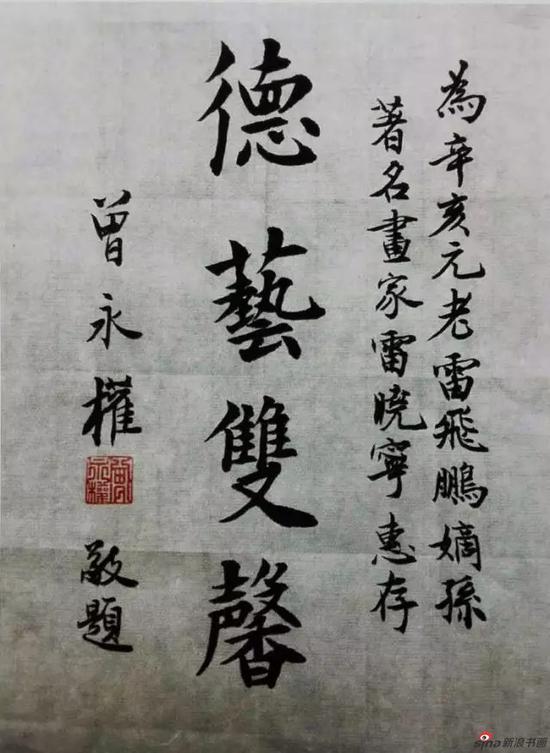 為辛亥元老雷飛鵬嫡孫
著名畫家雷曉寧惠存
德藝雙馨
曾永權
敬題
sina 新浪书画